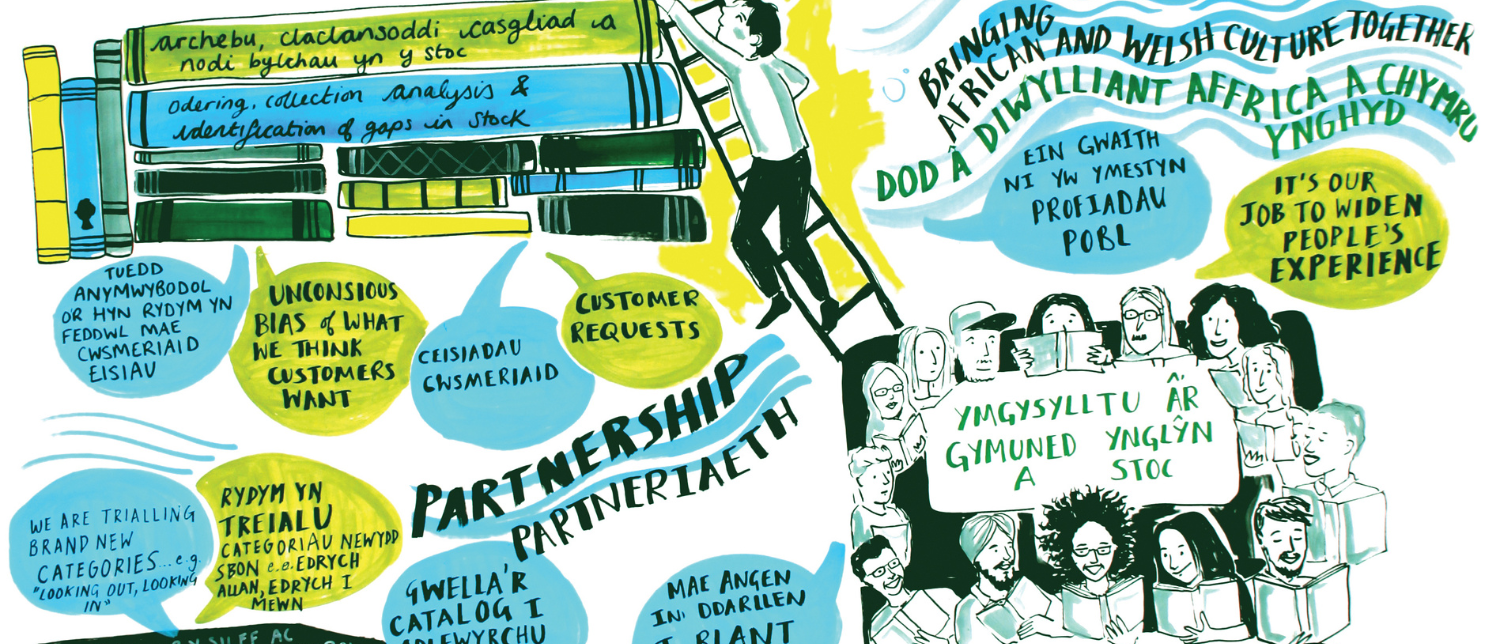 archebu, claclansoddi casgliad a
nodi bylchau yn y stoc
odering, collection analysis &
identification of gaps in stock
BRINGING
AFRICAN AND WELSH CULTURE TOGETHER
DOD Â DIWYLLIANT AFFRICA A CHYMRU
YNGHYD
EIN GWAITH
NI YW YMESTYN
PROFIADAU
POBL
IT'S OUR
JOB TO WIDEN
PEOPLE'S
EXPERIENCE
TUEDD
ANYMWYBODOL
OR HYN RYDYM YN
FEDDWL MAE
CWSMERIAID
EISIAU
UNCONSIOUS
BIAS of WHAT
WE THINK
CUSTOMERS
WANT
CEISIADAU
CWSMERIAID
CUSTOMER
REQUESTS
PARTNERSHIP
PARTNERIAETH
YMGYSYLLTU Â'R
GYMUNED YNGLŶN
A STOC
WE ARE TRIALLING
BRAND NEW
CATEGORIES... e.g.
"LOOKING OUT, LOOKING
IN"
RYDYM YN
TREIALU
CATEGORIAU NEWYDD
SBON e.e. EDRYCH
ALLAN, EDRYCH I
MEWN
GWELLA'R
CATALOG I
ADLEWYRCHU
MAE ANGEN
INI DDARLLEN
I BLANT
SILFF AC